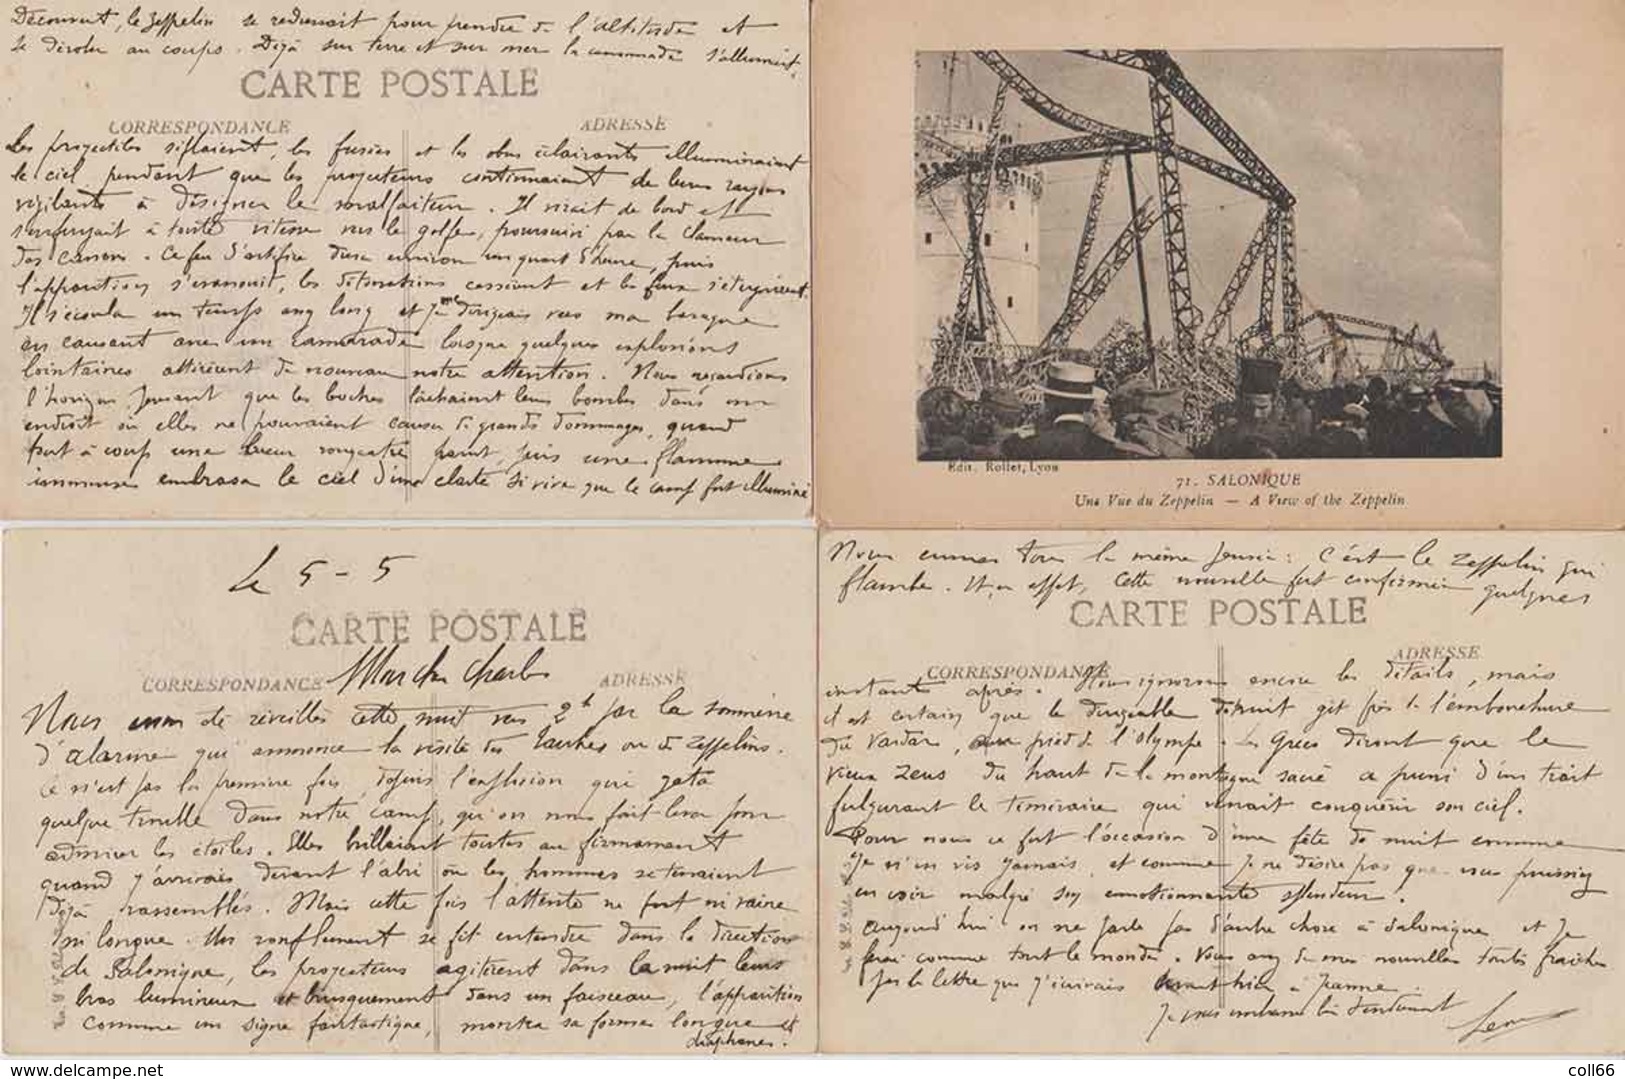 Découvert, le zeppelin se redressait pour prendre de l'altitude et
se dérober au coups. Déjà sur terre et sur mer la canonnade s'allumait.
CARTE POSTALE
CORRESPONDANCE
ADRESSE
Les projectiles sifflaient, les fusées et les obus éclairants illuminaient
le ciel pendant que les projecteurs continuaient de leurs rayons
vigilants à désigner le malfaiteur. Il virait de bord et
s'enfuyait à toute vitesse vers le golfe, poursuivi par la clameur
des canons. Ce feu d'artifice dura environ un quart d'heure, puis
l'apparition s'évanouit, les détonations cessèrent et les feux s'éteignirent.
Il s'écoula un temps assez long et je me dirigeais vers ma baraque
en causant avec un camarade lorsque quelques explosions
lointaines attirèrent de nouveau notre attention. Nous regardions
l'horizon pensant que les boches lâchaient leurs bombes dans un
endroit où elles ne pouvaient causer de grands dommages, quand
tout à coup une lueur rougeatre parut puis une flamme
immense embrasa le ciel d'une clarté si vive que le camp fut illuminé
Edit. Rollet, Lyon
71. SALONIQUE
Une Vue du Zeppelin — A View of the Zeppelin
Le 5-5
CARTE POSTALE
Mon cher Charles
CORRESPONDANCE
ADRESSE
Nous avons été réveillés cette nuit vers 2h par la sonnerie
d'alarme qui annonce la visite des taubes ou de zeppelins.
Ce n'est pas la première fois, depuis l'explosion qui jeta
quelque trouble dans notre camp, qu'on nous fait lever pour
admirer les étoiles. Elles brillaient toutes au firmament
quand j'arrivais devant l'abri où les hommes se tenaient
déjà rassemblés. Mais cette fois l'attente ne fut ni vaine
ni longue. Un ronflement se fit entendre dans la direction
de Salonique, les projecteurs agitèrent dans la nuit leurs
bras lumineux et brusquement dans un faisceau, l'apparition
comme un signe fantastique, montra sa forme longue et
diaphane.
Nous eumes tous la même pensée : C'est le zeppelin qui
flambe. Et, en effet, cette nouvelle fut confirmée quelques
CARTE POSTALE
CORRESPONDANCE
ADRESSE
instants après. Nous ignorons encore les détails, mais
il est certain que le dirigeable détruit git près de l'embouchure
du Vardar, au pied de l'Olympe. Les Grecs diront que le
vieux Zeus du haut de la montagne sacré a puni d'un trait
fulgurant le téméraire qui venait conquérir son ciel.
Pour nous ce fut l'occasion d'une fête de nuit comme
je n'en vis jamais, et comme je ne désire pas que vous puissiez
en voir malgré son émotionnante splendeur.
Aujourd'hui on ne parle pas d'autre chose à Salonique et je
ferai comme tout le monde. Vous avez de mes nouvelles toutes fraiches
par la lettre que j'écrivais avant hier à Jeanne.
Je vous embrasse bien tendrement
coll66